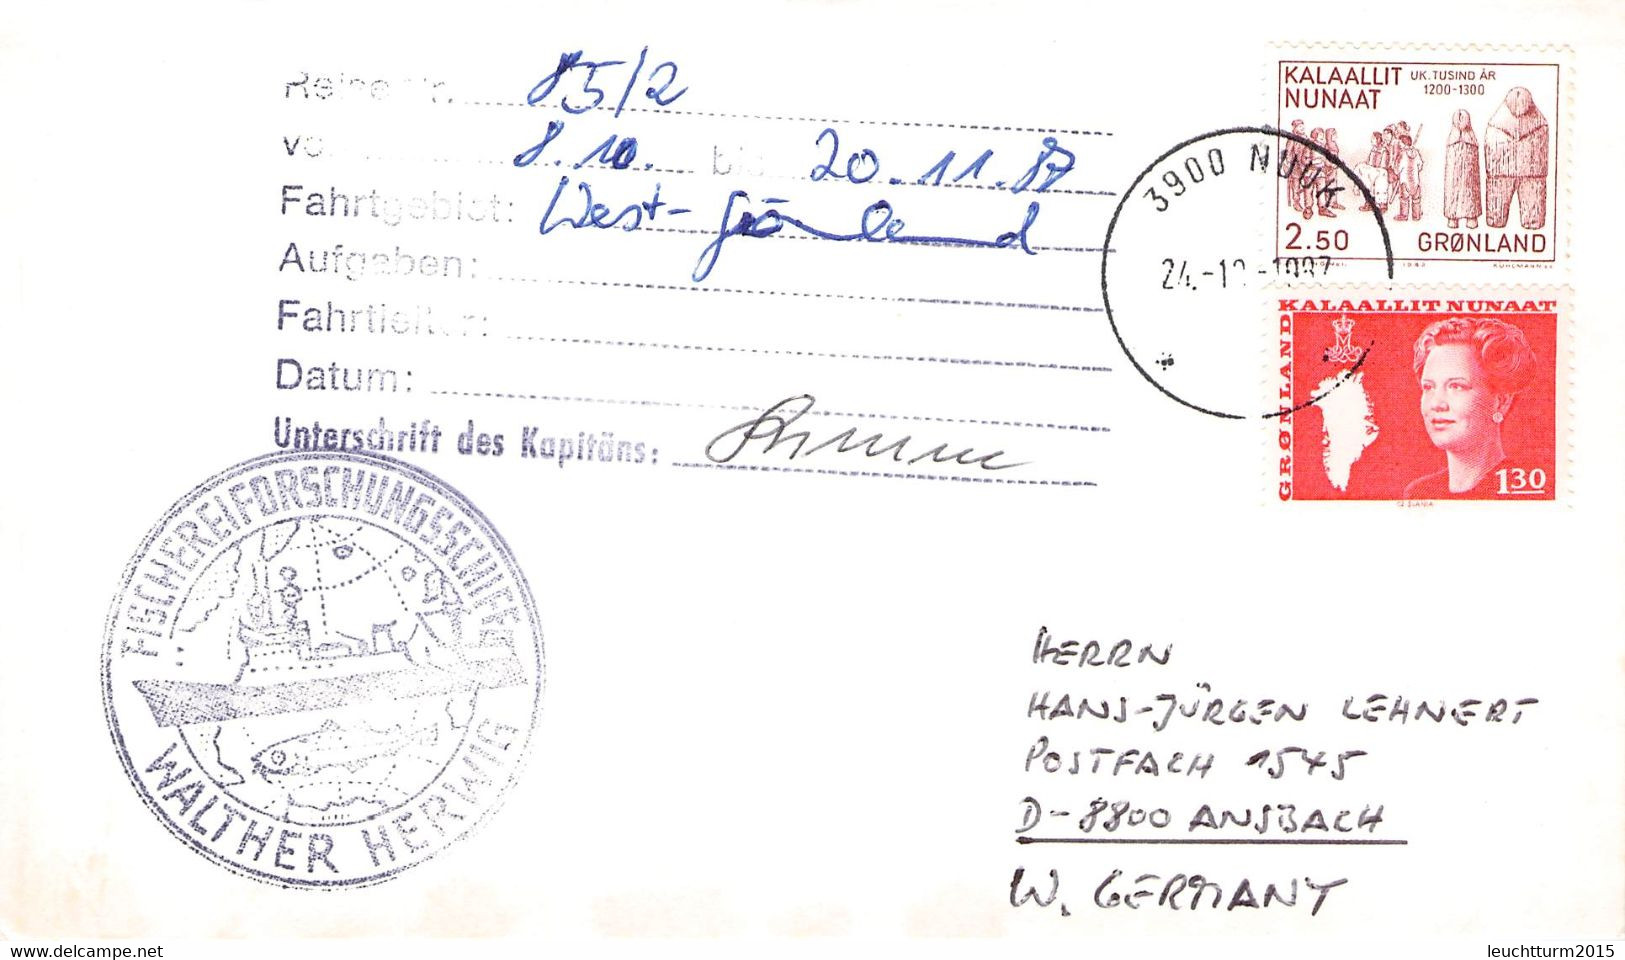 Reise Nr. 85/2
vom 8.10. bis 20.11.87
Fahrtgebiet: West-Grönland
Aufgaben:
Fahrtleiter:
Datum:
Unterschrift des Kapitäns:
FISCHEREIFORSCHUNGSSCHIFF
WALTHER HERWIG
3900 NUUK
24.-10.-1987
KALAALLIT NUNAAT
UK. TUSIND ÅR
1200-1300
2.50 GRØNLAND
KALAALLIT NUNAAT
GRØNLAND
1.30
CZ. SLANIA
HERRN
HANS-JÜRGEN LEHNERT
POSTFACH 1545
D-8800 ANSBACH
W. GERMANY
leuchtturm2015